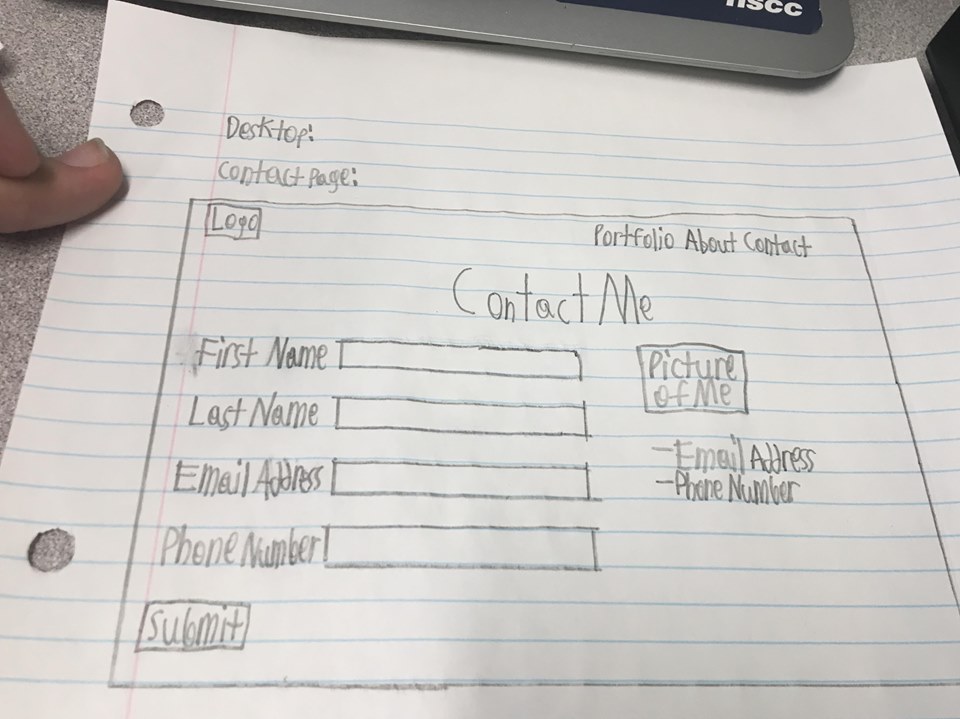 nscc
Desktop:
Contact Page:
Logo
Portfolio About Contact
Contact Me
First Name
Last Name
Email Address
Phone Number
Submit
Picture
of Me
-Email Address
-Phone Number